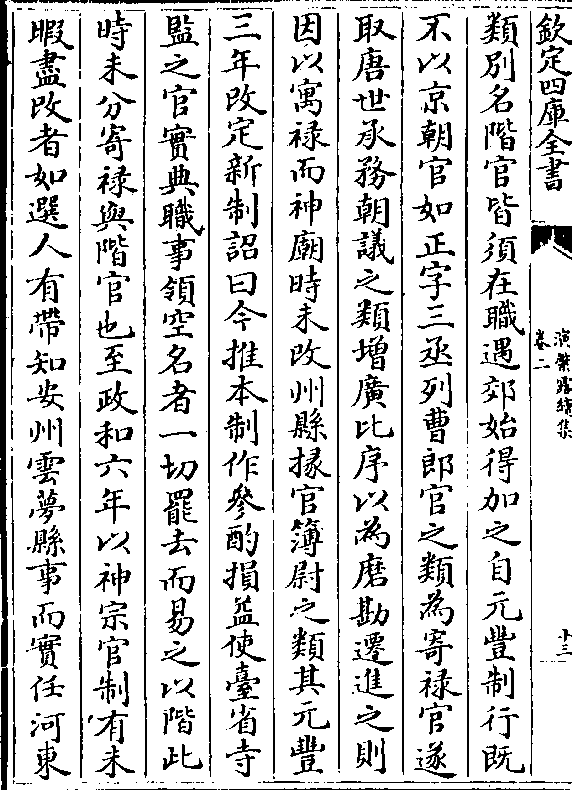 欽定四庫全書
演繁露續集
卷二
十三
類別名階官皆須在職遇郊始得加之自元豐制行既
不以京朝官如正字三丞列曹郎官之類為寄禄官遂
取唐世承務朝議之類增廣比序以為磨勘遷進之則
因以寓禄而神廟時未改州縣掾官簿尉之類其元豐
三年改定新制詔曰今推本制作參酌損益使臺省寺
監之官實典職事領空名者一切罷去而易之以階此
時未分寄禄與階官也至政和六年以神宗官制有未
暇盡改者如選人有帶知安州雲夢縣事而實任河東